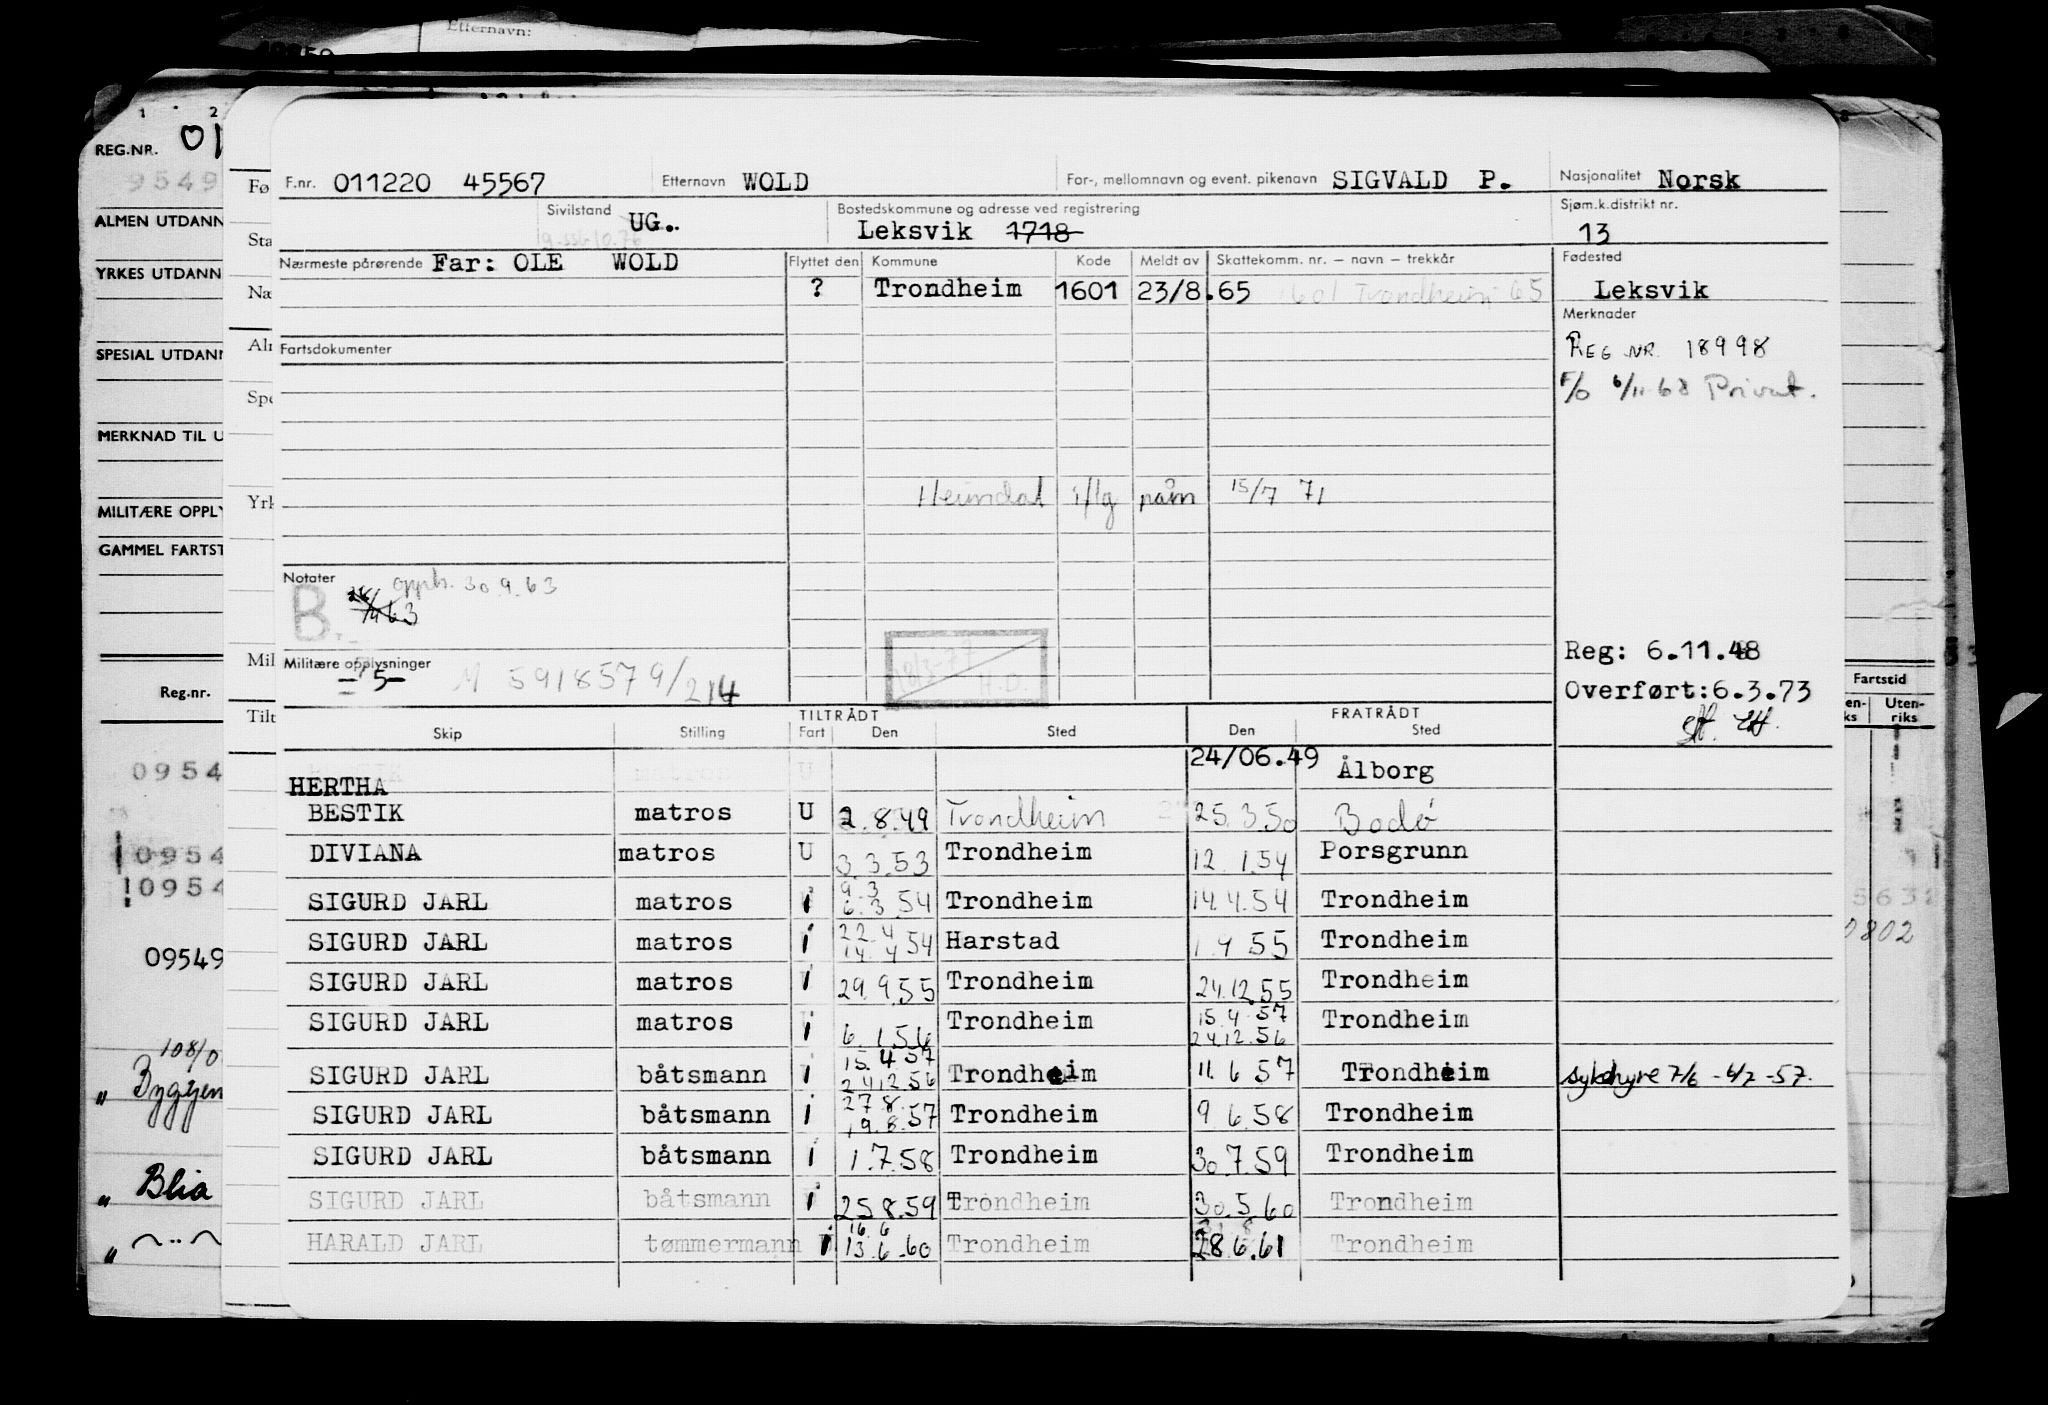 Etternavn:
1 2
REG.NR. 01
9549
ALMEN UTDANN
YRKES UTDANN
SPESIAL UTDANN
MERKNAD TIL U
MILITÆRE OPPLY
GAMMEL FARTST
Reg.nr.
0954
0954
0954
09549
108/0
" Byggen
" Blia
"
Fø
Sta
Næ
Alr
Spe
Yrk
Mil
Tilt
F.nr. 011220 45567 Etternavn WOLD For-, mellomnavn og event. pikenavn SIGVALD P. Nasjonalitet Norsk
Sivilstand UG. Bostedskommune og adresse ved registrering Sjøm.k.distrikt nr.
Leksvik 1718 13
Nærmeste pårørende Far: OLE WOLD Flyttet den Kommune Kode Meldt av Skattekomm. nr. – navn – trekkår Fødested
? Trondheim 1601 23/8.65 1601 Trondheim 65 Leksvik
Merknader
Fartsdokumenter REG NR. 18998
F/O 6/11-68 Privat.
Heimdal i/lg påm 15/7 71
Notater opph. 30.9.63
B.
Reg: 6.11.48
Militære opplysninger
-75- M 5918579/214
18/3-77 H.O.
Overført:6.3.73
TILTRÅDT FRATRÅDT Fartstid
Skip Stilling Fart Den Sted Den Sted Uten-riks
HERTHA 24/06.49 Ålborg
BESTIK matros U 2.8.49 Trondheim 25.3.50 Bodø
DIVIANA matros U 3.3.53 Trondheim 12.1.54 Porsgrunn
SIGURD JARL matros i 9.3 6.3.54 Trondheim 14.4.54 Trondheim
SIGURD JARL matros i 22.4 14.4.54 Harstad 1.9.55 Trondheim
SIGURD JARL matros i 29.9.55 Trondheim 24.12.55 Trondheim
SIGURD JARL matros i 6.1.56 Trondheim 15.4.57 24.12.56 Trondheim
SIGURD JARL båtsmann i 15.4.57 24.12.56 Trondheim 11.6.57 Trondheim sykehyre 7/6 -6/7 -57.
SIGURD JARL båtsmann i 27.8. 19.8.57 Trondheim 9.6.58 Trondheim
SIGURD JARL båtsmann i 1.7.58 Trondheim 30.7.59 Trondheim
SIGURD JARL båtsmann i 25.8.59 Trondheim 30.5.60 Trondheim
HARALD JARL tømmermann i 16.6 13.6.60 Trondheim 28.6.61 Trondheim
5632
0802